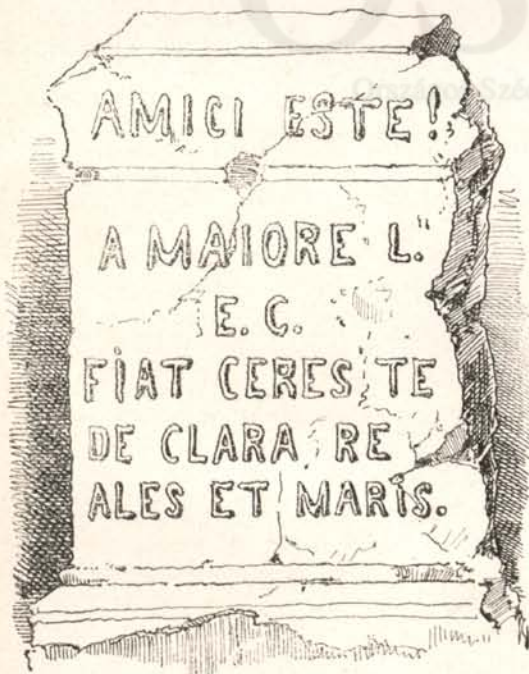 AMICI ESTE!
A MAIORE L."
E. C.
FIAT CERES TE
DE CLARA RE
ALES ET MARIS.